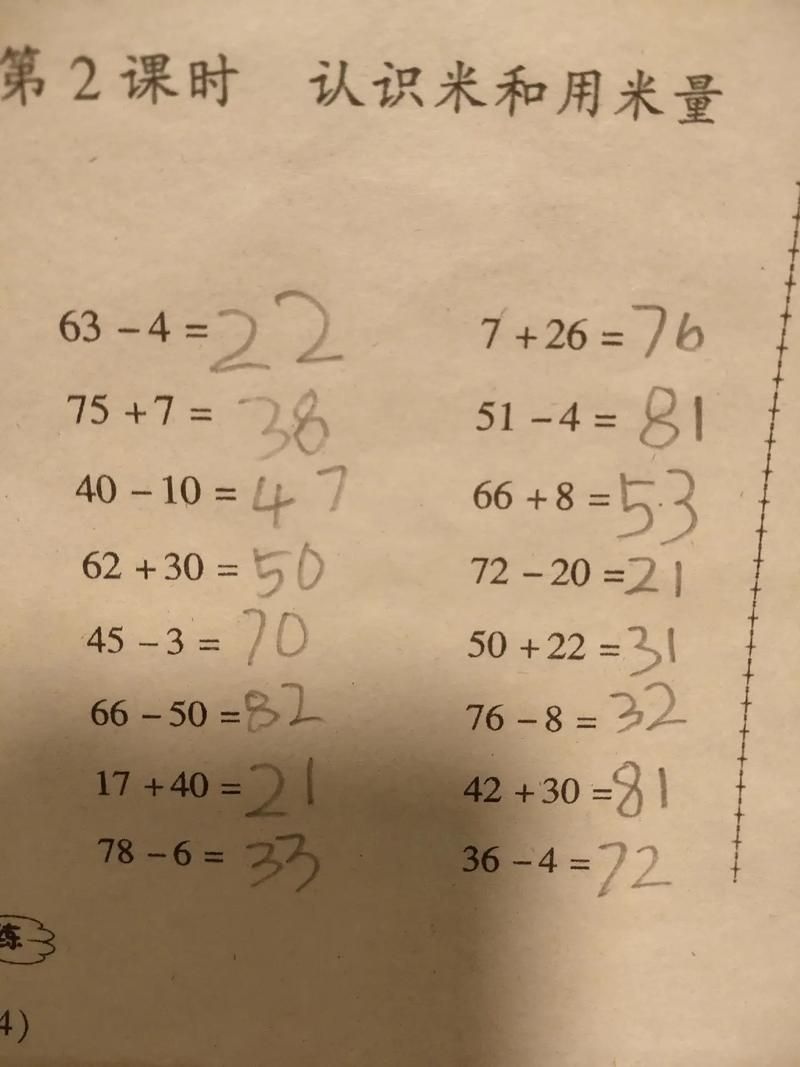 第2课时 认识米和用米量
63 − 4 = 22
7 + 26 = 76
75 + 7 = 38
51 − 4 = 81
40 − 10 = 47
66 + 8 = 53
62 + 30 = 50
72 − 20 = 21
45 − 3 = 70
50 + 22 = 31
66 − 50 = 82
76 − 8 = 32
17 + 40 = 21
42 + 30 = 81
78 − 6 = 33
36 − 4 = 72
练
4)